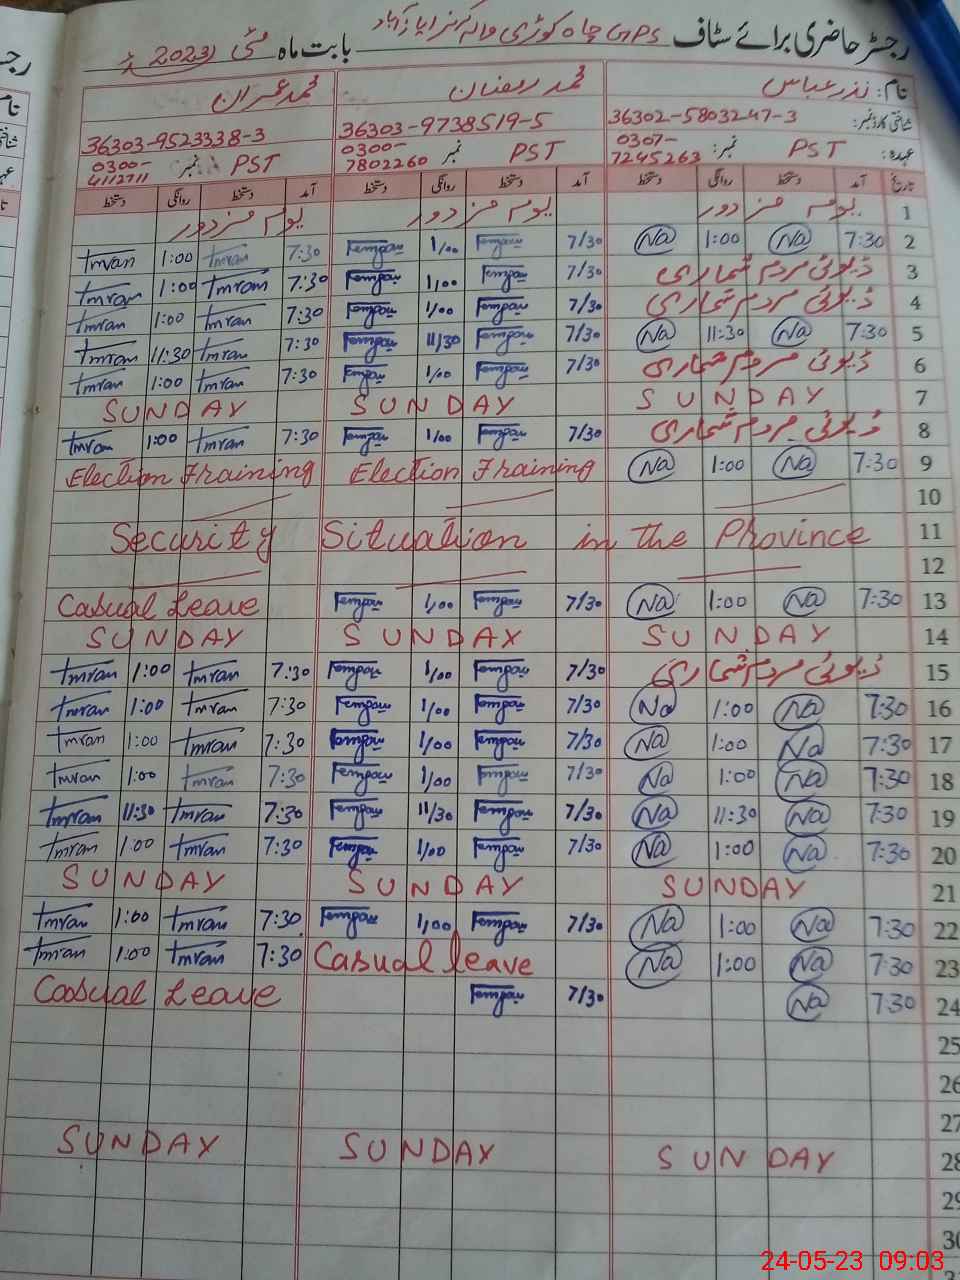 رجسٹر حاضری برائے سٹاف GPS چاہ کوڑی والہ بابت ماہ مئی 2023
نام: نذر عباس محمد رمضان محمد عمران
شناختی کارڈ نمبر: 36302-5803247-3 36303-9738519-5 36303-9523338-3
عہدہ: PST نمبر: 0307-7245263 PST نمبر 0300-7802260 PST نمبر 0300-4112711
تاریخ آمد دستخط روانگی دستخط آمد دستخط روانگی دستخط آمد دستخط روانگی دستخط
1 یوم مزدور یوم مزدور یوم مزدور
2 7:30 Na 1:00 Na 7/30 1/00 7:30 Imran 1:00 Imran
3 ڈیوٹی مردم شماری 7/30 1/00 7:30 Imran 1:00 Imran
4 ڈیوٹی مردم شماری 7/30 1/00 7:30 Imran 1:00 Imran
5 7:30 Na 11:30 Na 7/30 11/30 7:30 Imran 11:30 Imran
6 ڈیوٹی مردم شماری 7/30 1/00 7:30 Imran 1:00 Imran
7 SUNDAY SUNDAY SUNDAY
8 ڈیوٹی مردم شماری 7/30 1/00 7:30 Imran 1:00 Imran
9 7:30 Na 1:00 Na Election Training Election Training
10
11 Security Situation in the Province
12
13 7:30 Na 1:00 Na 7/30 1/00 Casual Leave
14 SUNDAY SUNDAY SUNDAY
15 ڈیوٹی مردم شماری 7/30 1/00 7:30 Imran 1:00 Imran
16 7:30 Na 1:00 Na 7/30 1/00 7:30 Imran 1:00 Imran
17 7:30 Na 1:00 Na 7/30 1/00 7:30 Imran 1:00 Imran
18 7:30 Na 1:00 Na 7/30 1/00 7:30 Imran 1:00 Imran
19 7:30 Na 11:30 Na 7/30 11/30 7:30 Imran 11:30 Imran
20 7:30 Na 1:00 Na 7/30 1/00 7:30 Imran 1:00 Imran
21 SUNDAY SUNDAY SUNDAY
22 7:30 Na 1:00 Na 7/30 1/00 7:30 Imran 1:00 Imran
23 7:30 Na 1:00 Na Casual leave 7:30 Imran 1:00 Imran
24 7:30 Na 7/30 Casual Leave
25
26
27
28 SUNDAY SUNDAY SUNDAY
29
30
24-05-23 09:03